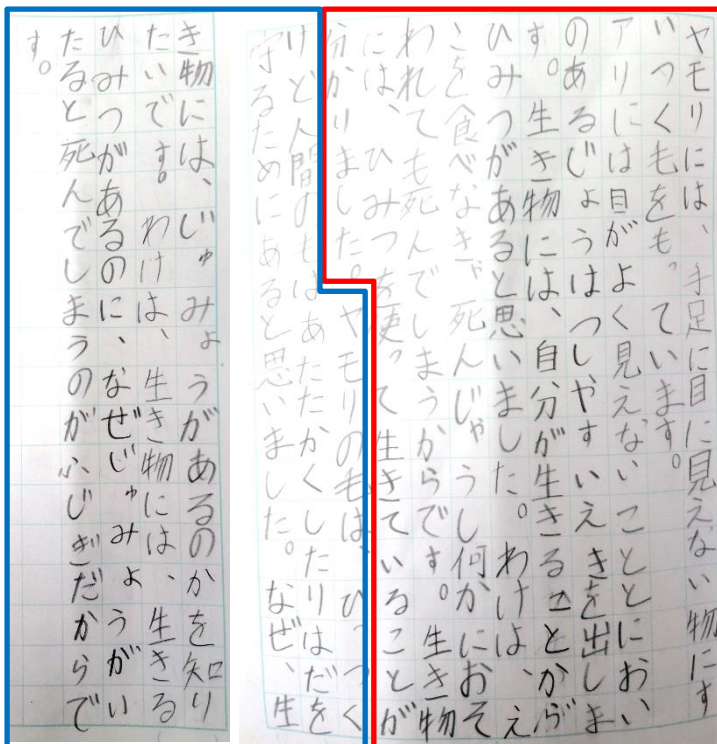 ヤモリには、手足に目に見えない物にす
いつくもをもっています。
アリには目がよく見えないこととにおい
のあるじょうはつしやすいえきを出しま
す。生き物には、自分が生きることかゞ
ひみつがあると思いました。わけは、え
こを食べなきゃ死んじゃうし何かにおそ
われても死んでしまうからです。生き物
には、ひみつを使って生きていることが
分かりました。ヤモリのもは、ひっつく
けど人間のもはあたたかくしたりはだを
守るためにあると思いました。なぜ、生
き物には、じゅみょうがあるのかを知り
たいです。わけは、生き物には、生きる
ひみつがあるのに、なぜじゅみょうがい
たると死んでしまうのがふしぎだからで
す。